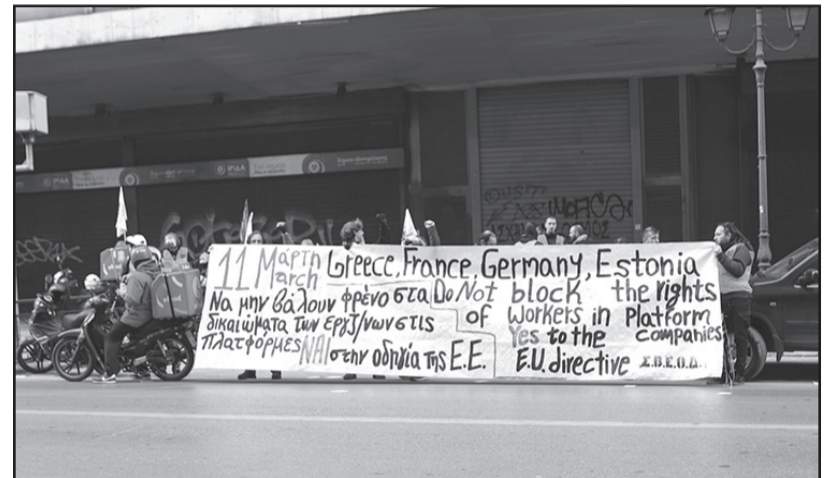 11 Μάρτη
March
Greece, France, Germany, Estonia
Να μην βάλουν φρένο στα
δικαιώματα των εργζ/νων στις
πλατφόρμες ΝΑΙ στην οδηγία της Ε.Ε.
Do Not block the rights
of workers in Platform
Yes to the companies
E.U. directive Σ.Β.Ε.Ο.Δ.